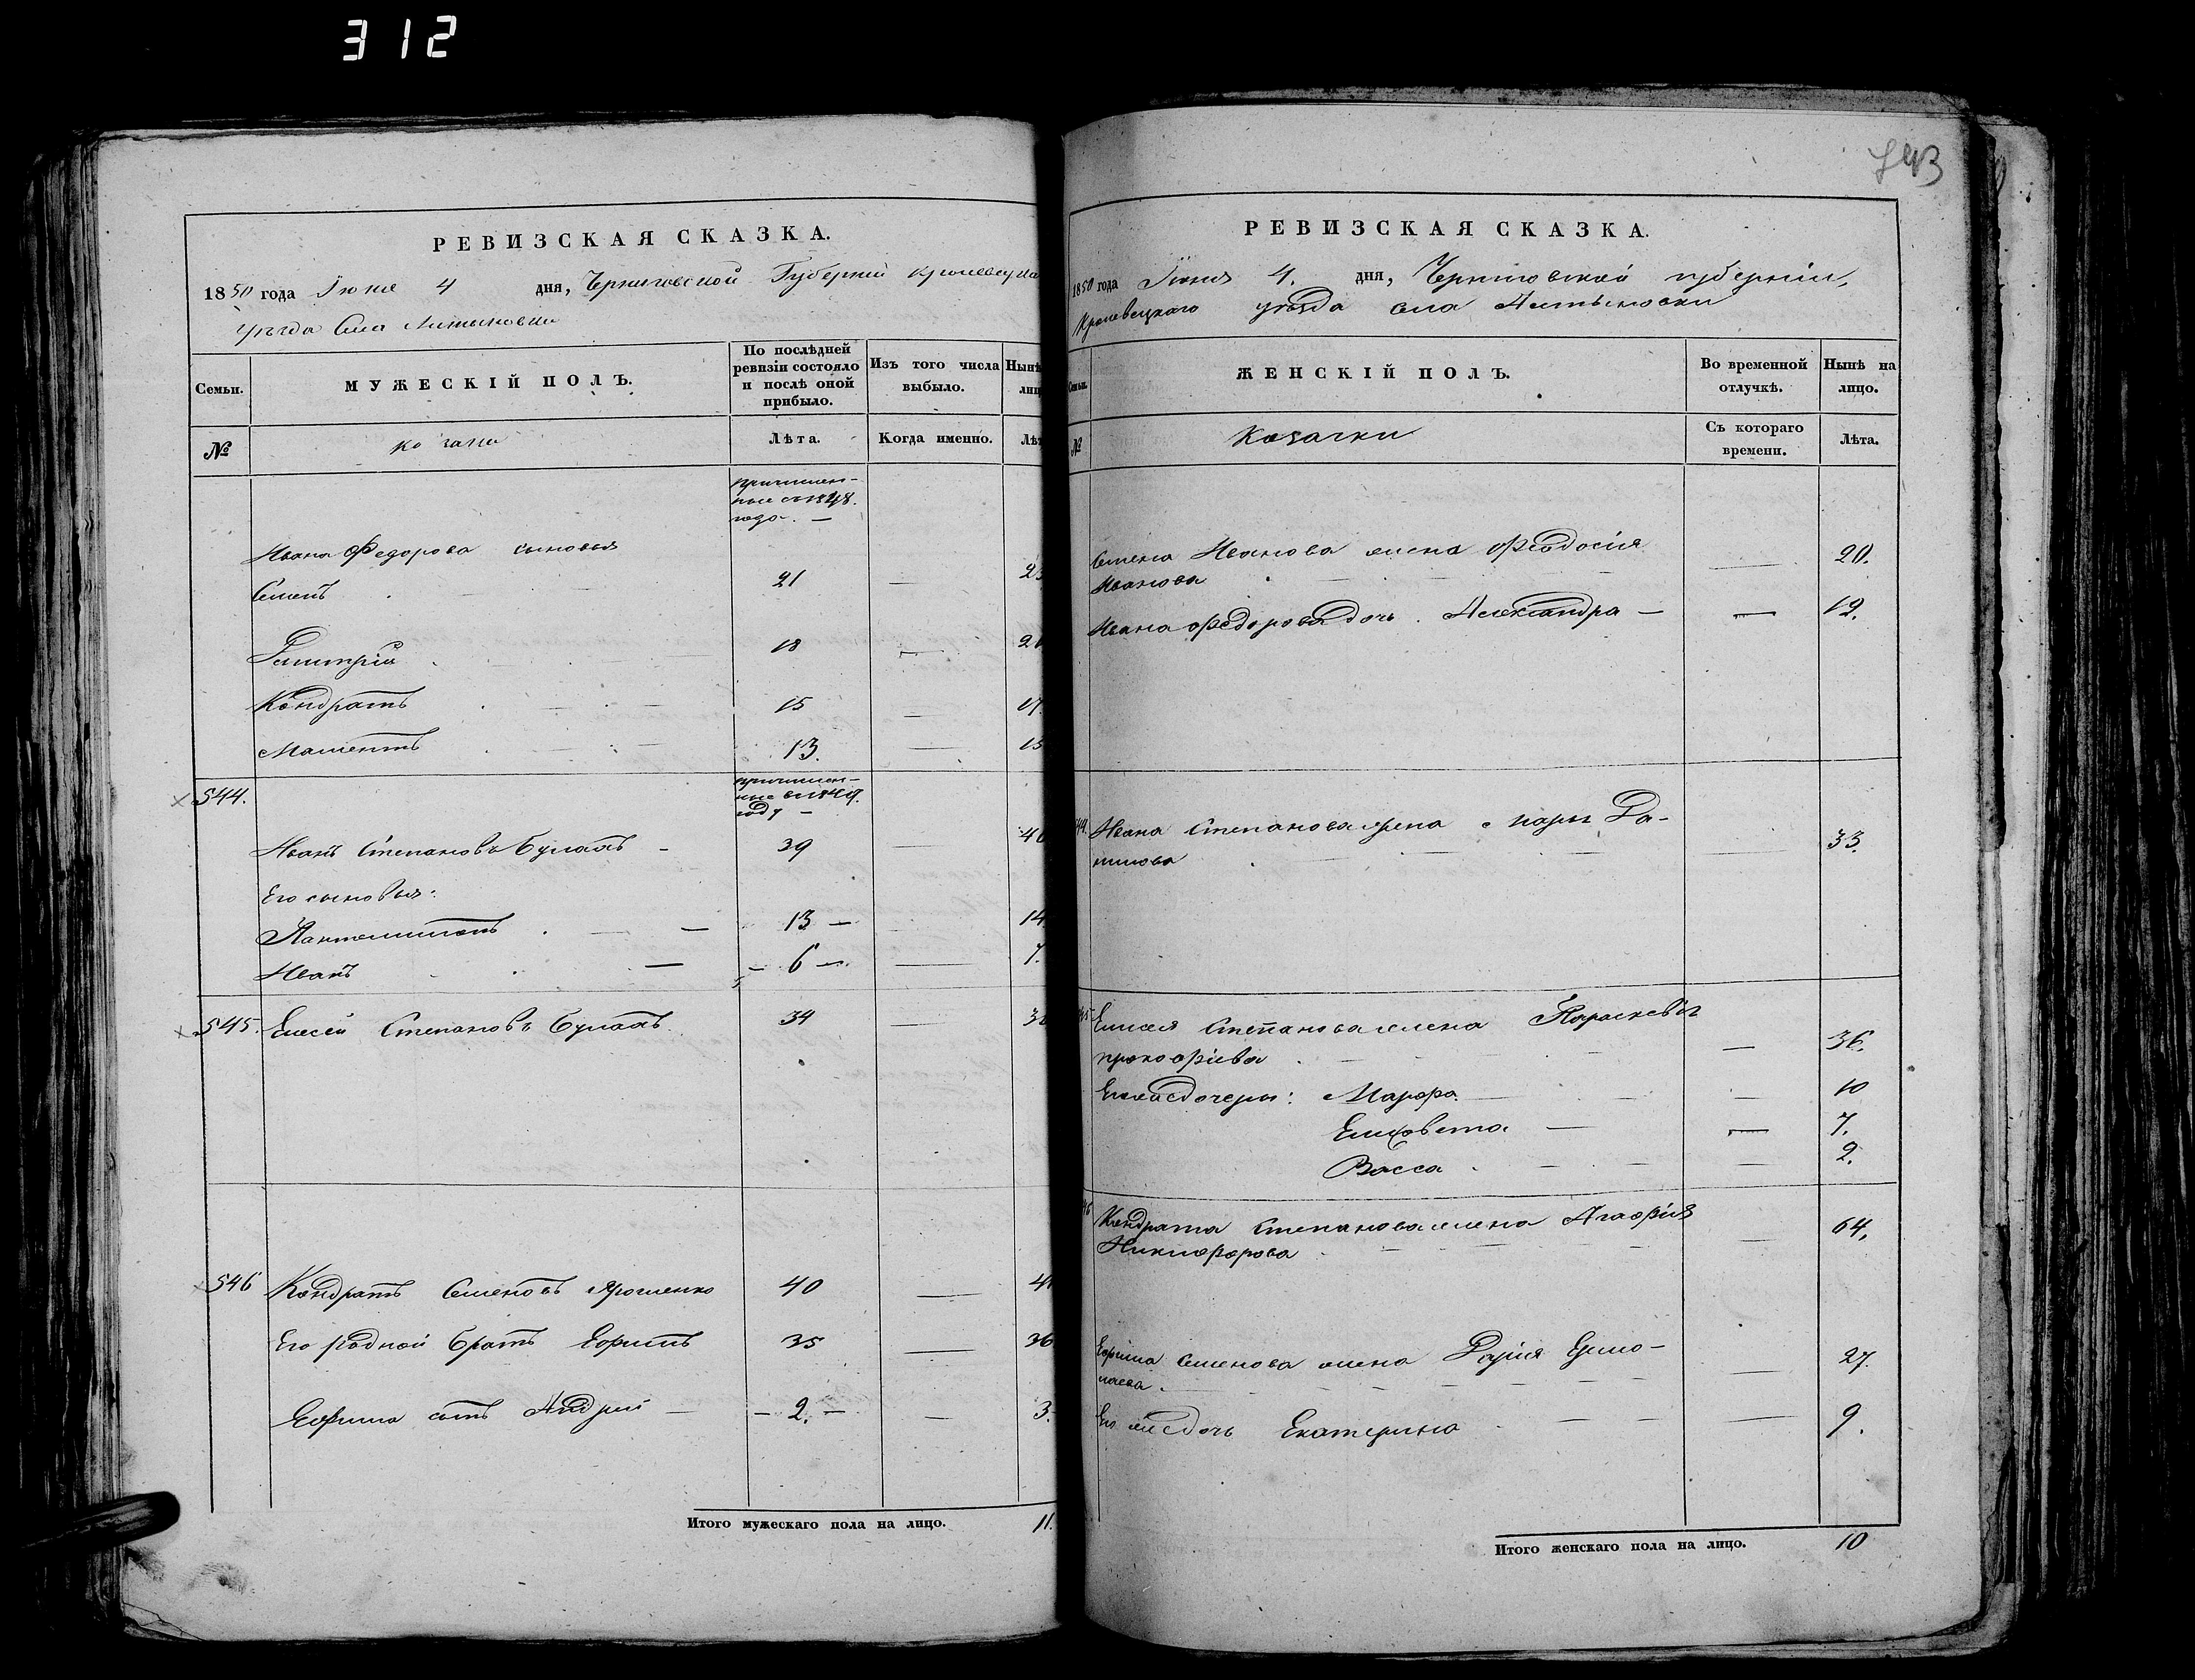 312
РЕВИЗСКАЯ СКАЗКА.
1850 года Іюня 4 дня, Черниговской Губерніи Кролевецка
Уѣзда Села Алтыновки
Семьи.
МУЖЕСКІЙ ПОЛЪ.
По послѣдней ревизіи состояло и послѣ оной прибыло.
Изъ того числа выбыло.
Нынѣ
лиц
№
козаки
Лѣта.
Когда именно.
Лѣт
причислен-
ные съ 1848.
года. —
Ивана Федорова сыновья
Семенъ 21 — 23
Димитрій 18 — 20
Кондратъ 15 — 17.
Маментъ 13. — 15
544.
причислен-
ные въ 1849.
году —
Иванъ Степановъ Булахъ — 39 — 40
Его сыновья:
Пантелимонъ — 13 — 14
Иванъ — 6 — 7.
545. Елисей Степановъ Булахъ 34 — 3
546 Кондратъ Семеновъ Ярошенко 40 — 41
Его родной братъ Ефимъ 35 — 36
Ефима сынъ Андрей — 2. — 3.
Итого мужескаго пола на лицо. 11.
743
РЕВИЗСКАЯ СКАЗКА.
1850 года Іюня 4. дня, Черниговской губерніи,
Кролевецкаго уѣзда села Алтыновки
Семьи.
ЖЕНСКІЙ ПОЛЪ.
Во временной отлучкѣ.
Нынѣ на лицо.
№
Козачки
Съ котораго времени.
Лѣта.
Семена Иванова жена Феодосія
Иванова — 20.
Ивана Федорова дочь Александра — 12.
44. Ивана Степанова жена Да-
нилова — 33.
45 Елисея Степанова жена Параскевія
Прокофіева — 36.
Елисея дочери: Марфа — 10
Елисавета — 7.
Васса — 2.
46 Кондрата Степанова жена Агафія
Никифорова — 64.
Ефима Семенова жена Дарія Ермо-
лаева — 27.
Его же дочь Екатерина — 9.
Итого женскаго пола на лицо. 10